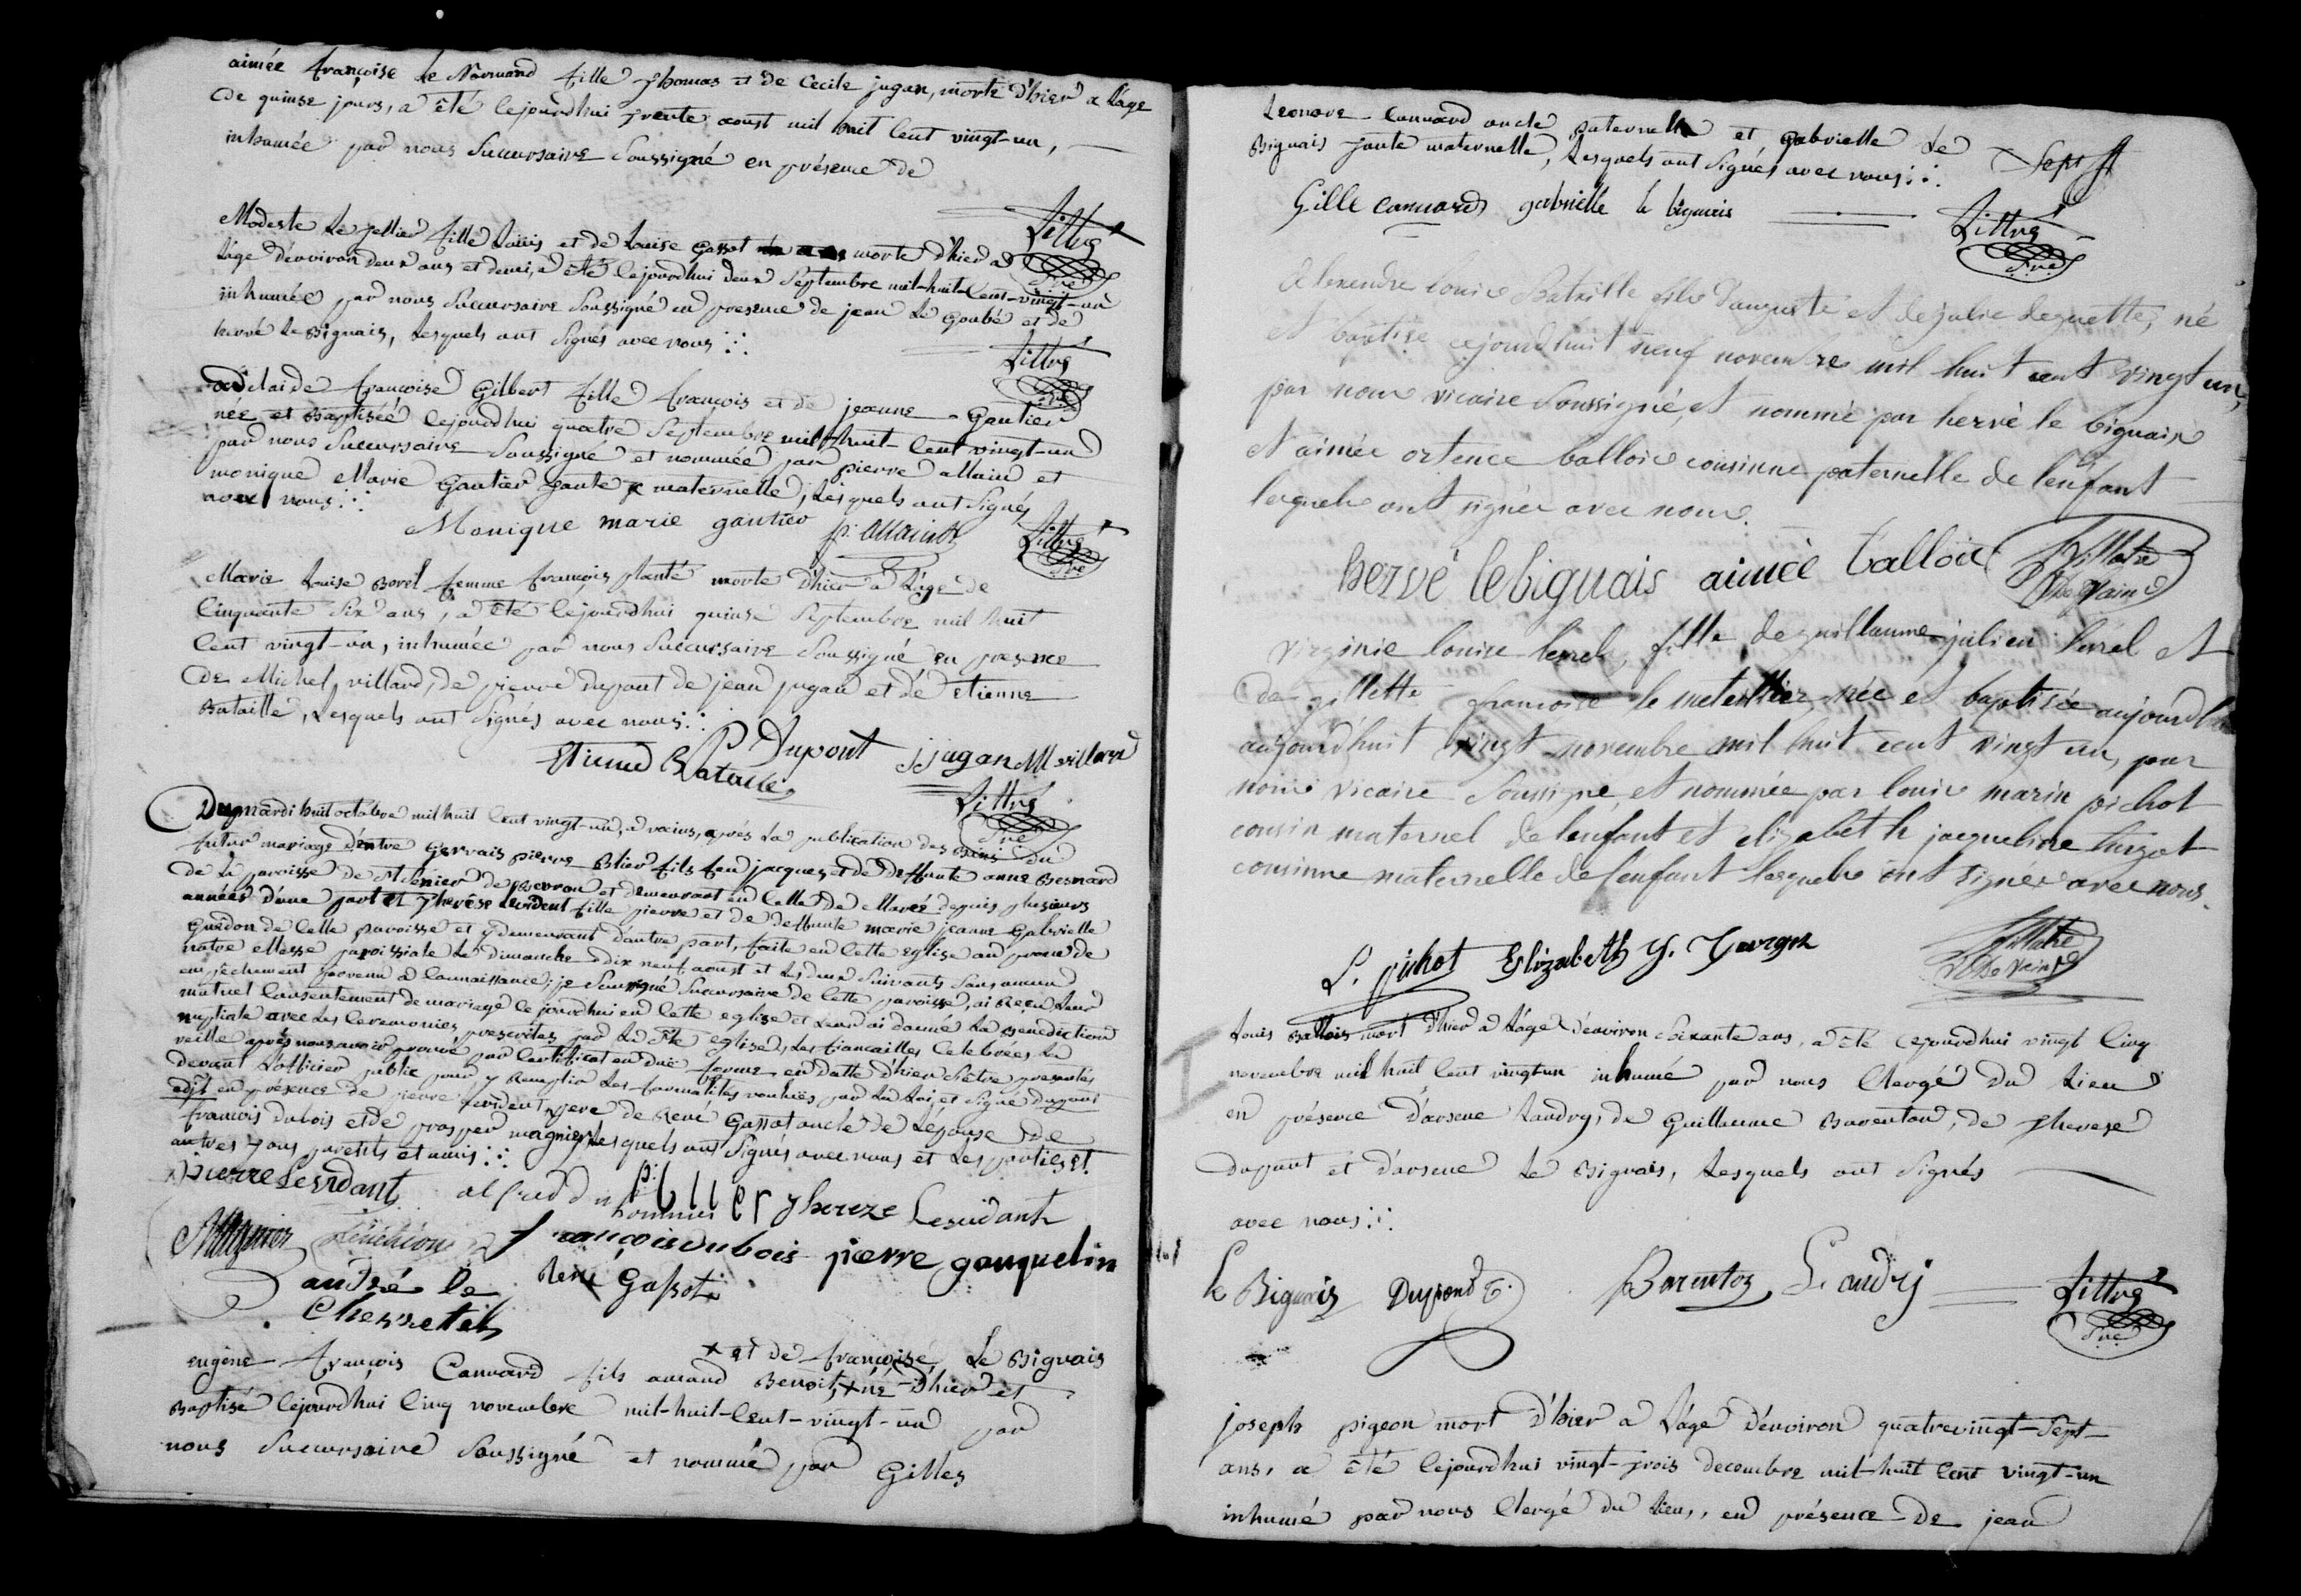 aimée françoise le Normand fille Thomas et de Cecile jugan, morte d'hier a l'áge
de quinse jours, a été cejourdhui trente aoust mil huit cent vingt-un,
inhumée par nous Succursaire Soussigné en présence de
Littré
Ptre
Modeste Le tellier fille Louis et de Louise Gassot morte d'hier a
l'áge d'environ deux ans et demi, a été cejourdhui deux Septembre mil-huit-cent-vingt-un
inhumée par nous Succursaire Soussigné en presence de jean Le Goubé et de
hervé Le Bignais, Lesquels ont Signés avec nous
Littré
Ptre
adelaide françoise Gilbert fille françois et de jeanne Gautier
née et Baptisée cejourdhui quatre Septembre mil huit cent vingt-un
par nous Succursaire Soussigné et nommée par pierre allain et
monique Marie Gautier tante maternelle, Lesquels ont Signés
avec nous
Monique marie gautier p. allain Littré
Ptre
Marie Louise Borel femme françois planté morte d'hier a l'áge de
Cinquante Six ans, a été cejourdhui quinse Septembre mil huit
Cent vingt-un, inhumée par nous Succursaire Soussigné en presence
de Michel villard, de pierre dupont de jean jugan et de Etienne
Bataille, Lesquels ont Signés avec nous
Etienne Bataille P Dupont j jugan M villard
Littré
Ptre
Du mardi huit octobre mil huit Cent vingt-un, a vains, aprés La publication des Bans du
futur mariage d'entre Gervais pierre Blier fils feu jacques et de deffunte anne Besnard
de La paroisse de St Senier de Beuvron et demeurant en Celle de Marcé depuis plusieurs
années d'une part et Therése Lesvident fille pierre et de deffunte marie jeanne Gabrielle
Guédon de Celle paroisse et y demeurant d'autre part, faite en Cette Eglise au prone de
notre Messe paroissiale Le dimanche dix neuf aoust et Les deux Suivants Sans aucun
empéchement parvenu a Connaissance; je Soussigné Succursaire de Cette paroisse, ai Reçu Leur
mutuel Consentement de mariage Ce jourdhui en Cette eglise et Leur ai donné La Benediction
nuptiale avec Les Ceremonies prescrites par La Ste eglise, Les fiancailles Celebrées La
veille aprés nous avoir prouvé par Certificat en due forme en datte d'hier S'etre presentés
devant L'officier public pour y Remplir Les formalités voulües par La Loi, et Signé
en présence de pierre Lesvident pere de René Gassot oncle de L'épouse de
francois dubois et de prosper magnier Lesquels ont Signés avec nous et Les parties et
autres tous parents et amis
pierre Lesvidant P: Blier thereze Lesvidant
Magnier françois dubois pierre gauquelin
andré le René Gassot
Eugene françois Cannard fils amand Benoit, + né d'hier et
+ et de françoise Le Bignais
Baptisé Cejourdhui Cinq novembre mil-huit-Cent-vingt-un par
nous Succursaire Soussigné et nommé par Gilles
Leonore Cannard oncle paternelle et Gabrielle Le
Bignais tante maternelle, Lesquels ont Signés avec nous
Gille Cannard gabrielle le bignais
Littré
Ptre
Alexendre louis Bataille fils d'auguste et de julie deguette, né
et baptisé cejourdhuit neuf novembre mil huit cent vingt un,
par nous vicaire Soussigné, et nommé par hervé le bignais
et aimée ortence ballois cousinne paternelle de l'enfant
lesquels ont signés avec nous.
hervé lebignais aimée Ballois
virginie louise hurel, fille de guillaume julien hurel et
de gillette françoise le metellier, née et baptisée
aujourd'huit vingt novembre mil huit cent vingt un, par
nous vicaire Soussigné, et nommée par louis marin pichot
cousin maternel de lenfant et elizabeth jacqueline
cousinne maternelle de lenfant lesquels ont signés avec nous.
L. pichot Elizabeth J.
Louis Ballois mort d'hier a l'áge d'environ Soixante ans, a été cejourdhui vingt Cinq
novembre mil huit Cent vingt-un inhumé par nous Clergé du Lieu
en présence d'arsene Landry, de Guillaume Barenton, de Therese
dupont et d'arsene Le Bignais, Lesquels ont Signés
avec nous
le Bignais Dupond Barenton Landry Littré
Ptre
joseph pigeon mort d'hier a l'áge d'environ quatrevingt-Sept-
ans, a été Cejourdhui vingt-trois decembre mil-huit Cent vingt-un
inhumé par nous Clergé du Lieu, en présence de jean